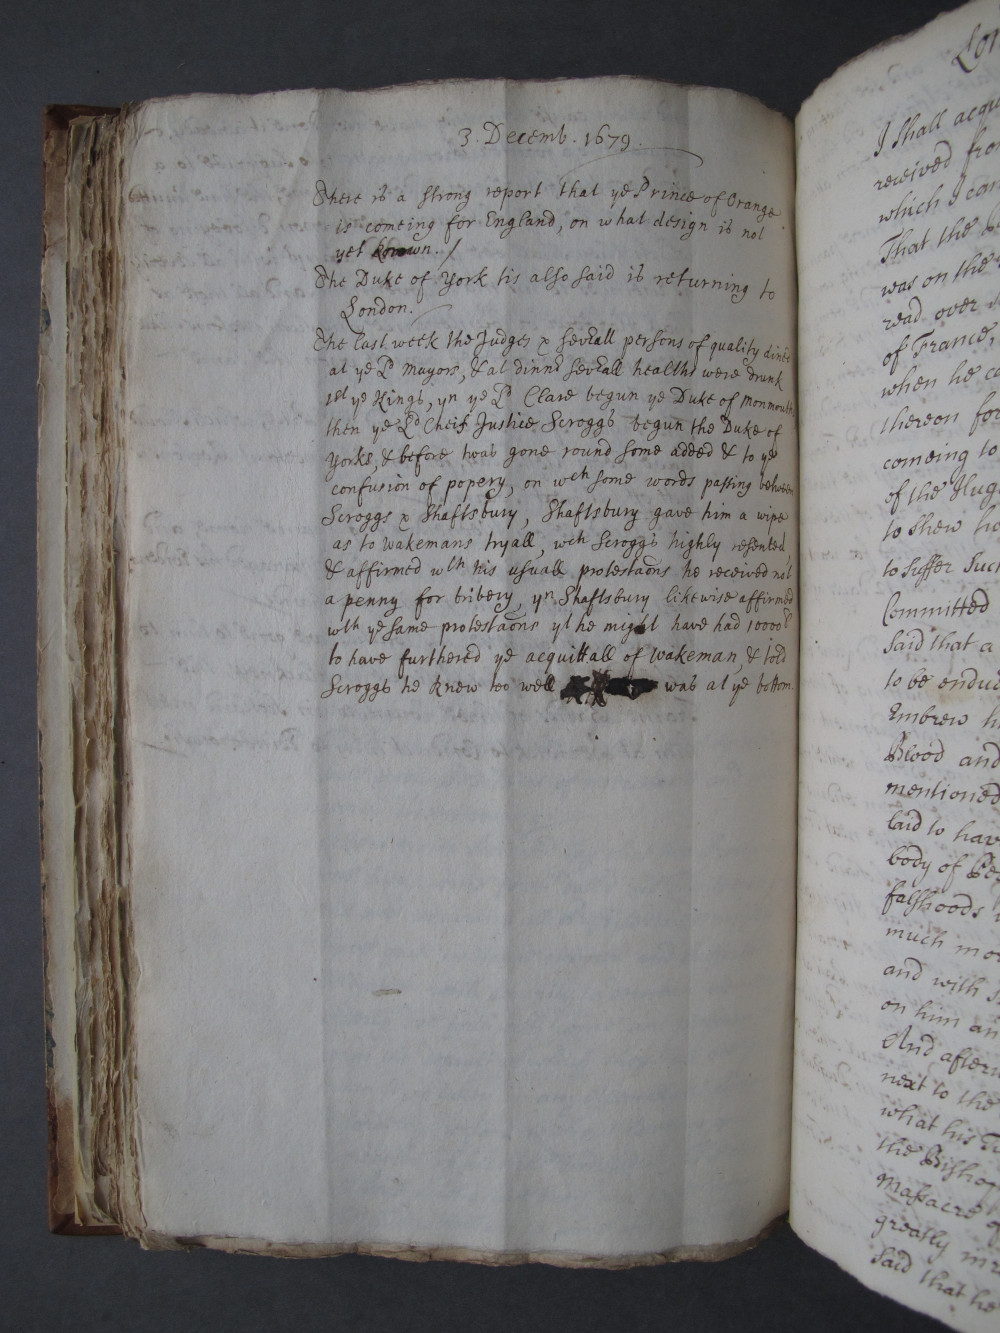 3. Decemb. 1679.
There is a strong report that ye Prince of Orange
is comeing for England, on what design is not
yet known. /
The Duke of York tis also said is returning to
London.
The last week the Judges & severall persons of quality dined
at ye Ld Mayors, & at dinnr severall healths were drunk
1st ye Kings, yn ye Ld Clare begun ye Duke of Monmouth
then ye Ld Cheif Justice Scroggs begun the Duke of
Yorks, & before twas gone round some added & to ye
confusion of popery, on wch some words passing between
Scroggs & Shaftsbury, Shaftsbury gave him a wipe
as to Wakemans tryall, wch Scroggs highly resented,
& affirmed wth his usuall protestaons he received not
a penny for bribery, yn Shaftsbury likewise affirmed
wth ye same protestaons yt he might have had 10000l
to have furthered ye acquittall of Wakeman, & told
Scroggs he knew too well was at ye bottom.
Lon
I shall acqu
received from
which I can
That the
was on the
read over
of France,
when he
thereon for
comeing to
of the Hug
to shew
to suffer such
Committed
said that a
to be endu
Embrew
Blood and
mentioned
laid to have
body of
falshoods
much mo
and with
on him an
And after
next to the
what his
the Bishop
Massacre of
greatly in
said that he